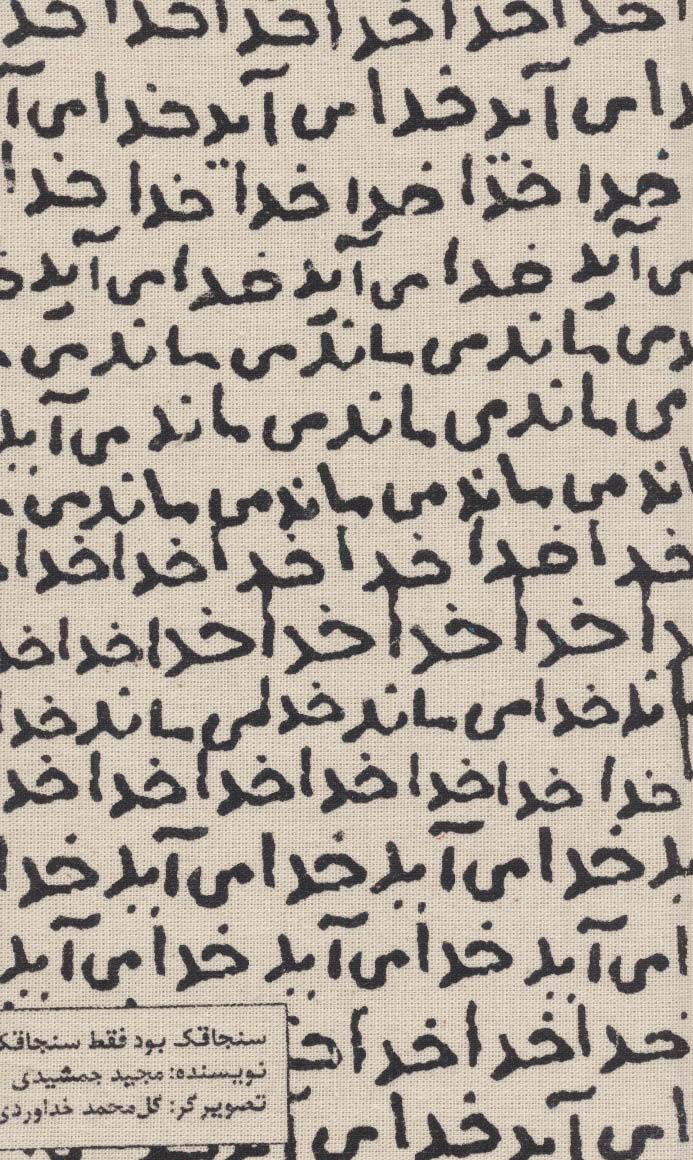 خدا خدا خدا خدا خدا خدا
خدا می آید خدا می آید خدا می
خدا خدا خدا خدا خدا خدا
می آید خدا می آید خدا می آید
می ماند می ماند می ماند می
می ماند می ماند می ماند می آید
ماند می ماند می ماند می ماند می
خدا خدا خدا خدا خدا خدا
خدا خدا خدا خدا خدا
ماند خدا می ماند خدا می ماند خدا
خدا خدا خدا خدا خدا خدا
خدا می آید خدا می آید خدا
می آید خدا می آید خدا می آید
خدا خدا خدا
می آید خدا می
سنجاقک بود فقط سنجاقک
نویسنده: مجید جمشیدی
تصویرگر: گل‌محمد خداوردی